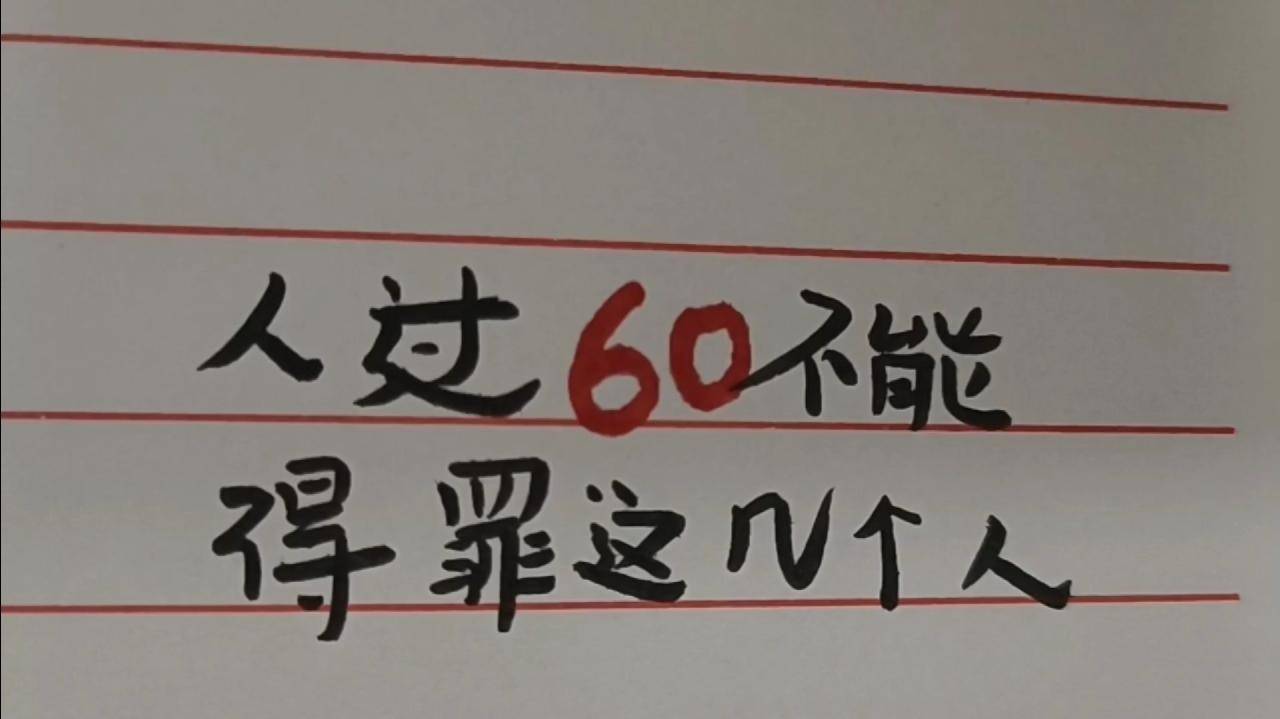 人过60不能
得罪这几个人